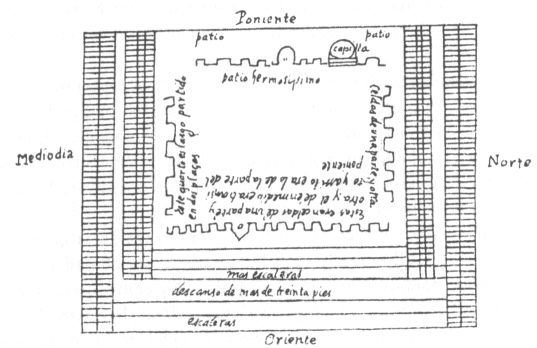 Poniente
patio
patio
capilla
patio hermosissimo
Este quarto es largo partido
en dos plaços
Celdas de una parte y otra
Mediodia
Norte
Estas eran celdas de una parte y
otra y el de enmedio era
lo era lo de la parte del
poniente
mas escaleras
descanso de mas de treinta pies
escaleras
Oriente